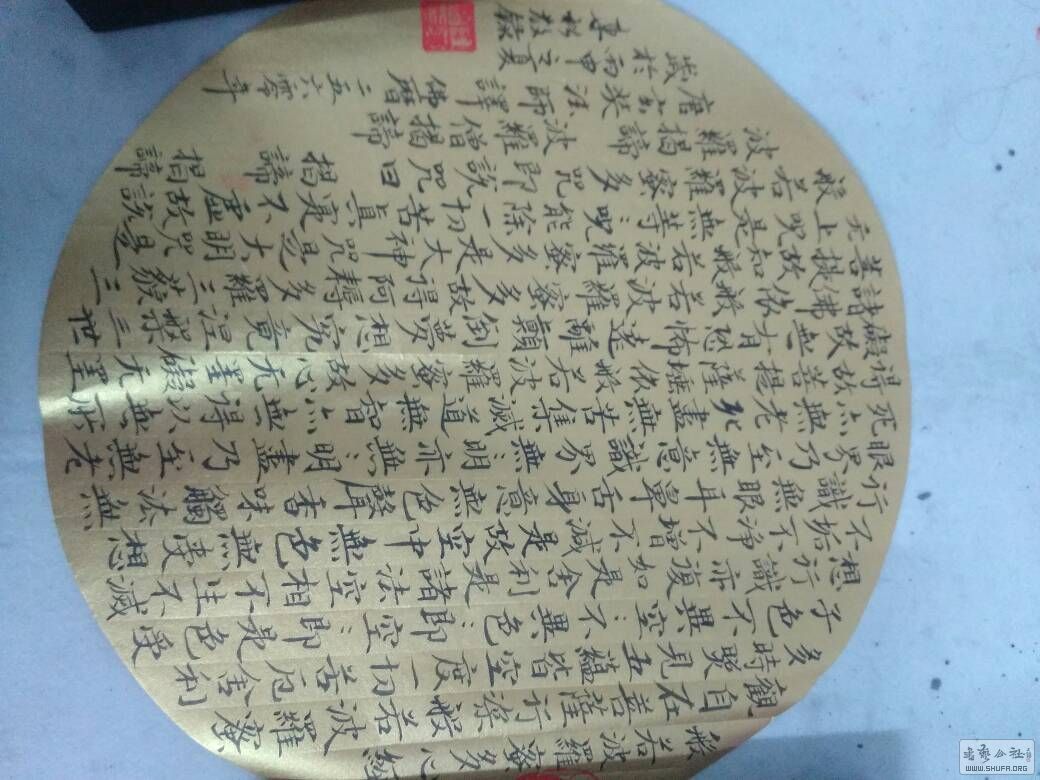 般若波羅蜜多心經
觀自在菩薩行深般若波羅蜜
多時照見五蘊皆空度一切苦厄舍利
子色不異空々不異色々即是空々即是色受
想行識亦復如是舍利子是諸法空相不生不滅
不垢不淨不增不減是故空中無色無受想
行識無眼耳鼻舌身意無色聲香味觸法無
眼界乃至無意識界無々明亦無々明盡乃至無老
死亦無老死盡無苦集滅道無智亦無得以無所
得故菩提薩埵依般若波羅蜜多故心无罣礙无罣
礙故無有恐怖遠離顛倒夢想究竟涅槃三世
諸佛依般若波羅蜜多故得阿耨多羅三藐三
菩提故知般若波羅蜜多是大神咒是大明咒是
无上咒是無等々咒能除一切苦真實不虛故說
般若波羅蜜多咒即說咒曰揭諦揭諦
波羅揭諦波羅僧揭諦
唐玄奘法師譯佛曆二五六零年
歲於丙申之夏
東裕敬錄
书艺公社
WWW.SHUFA.ORG